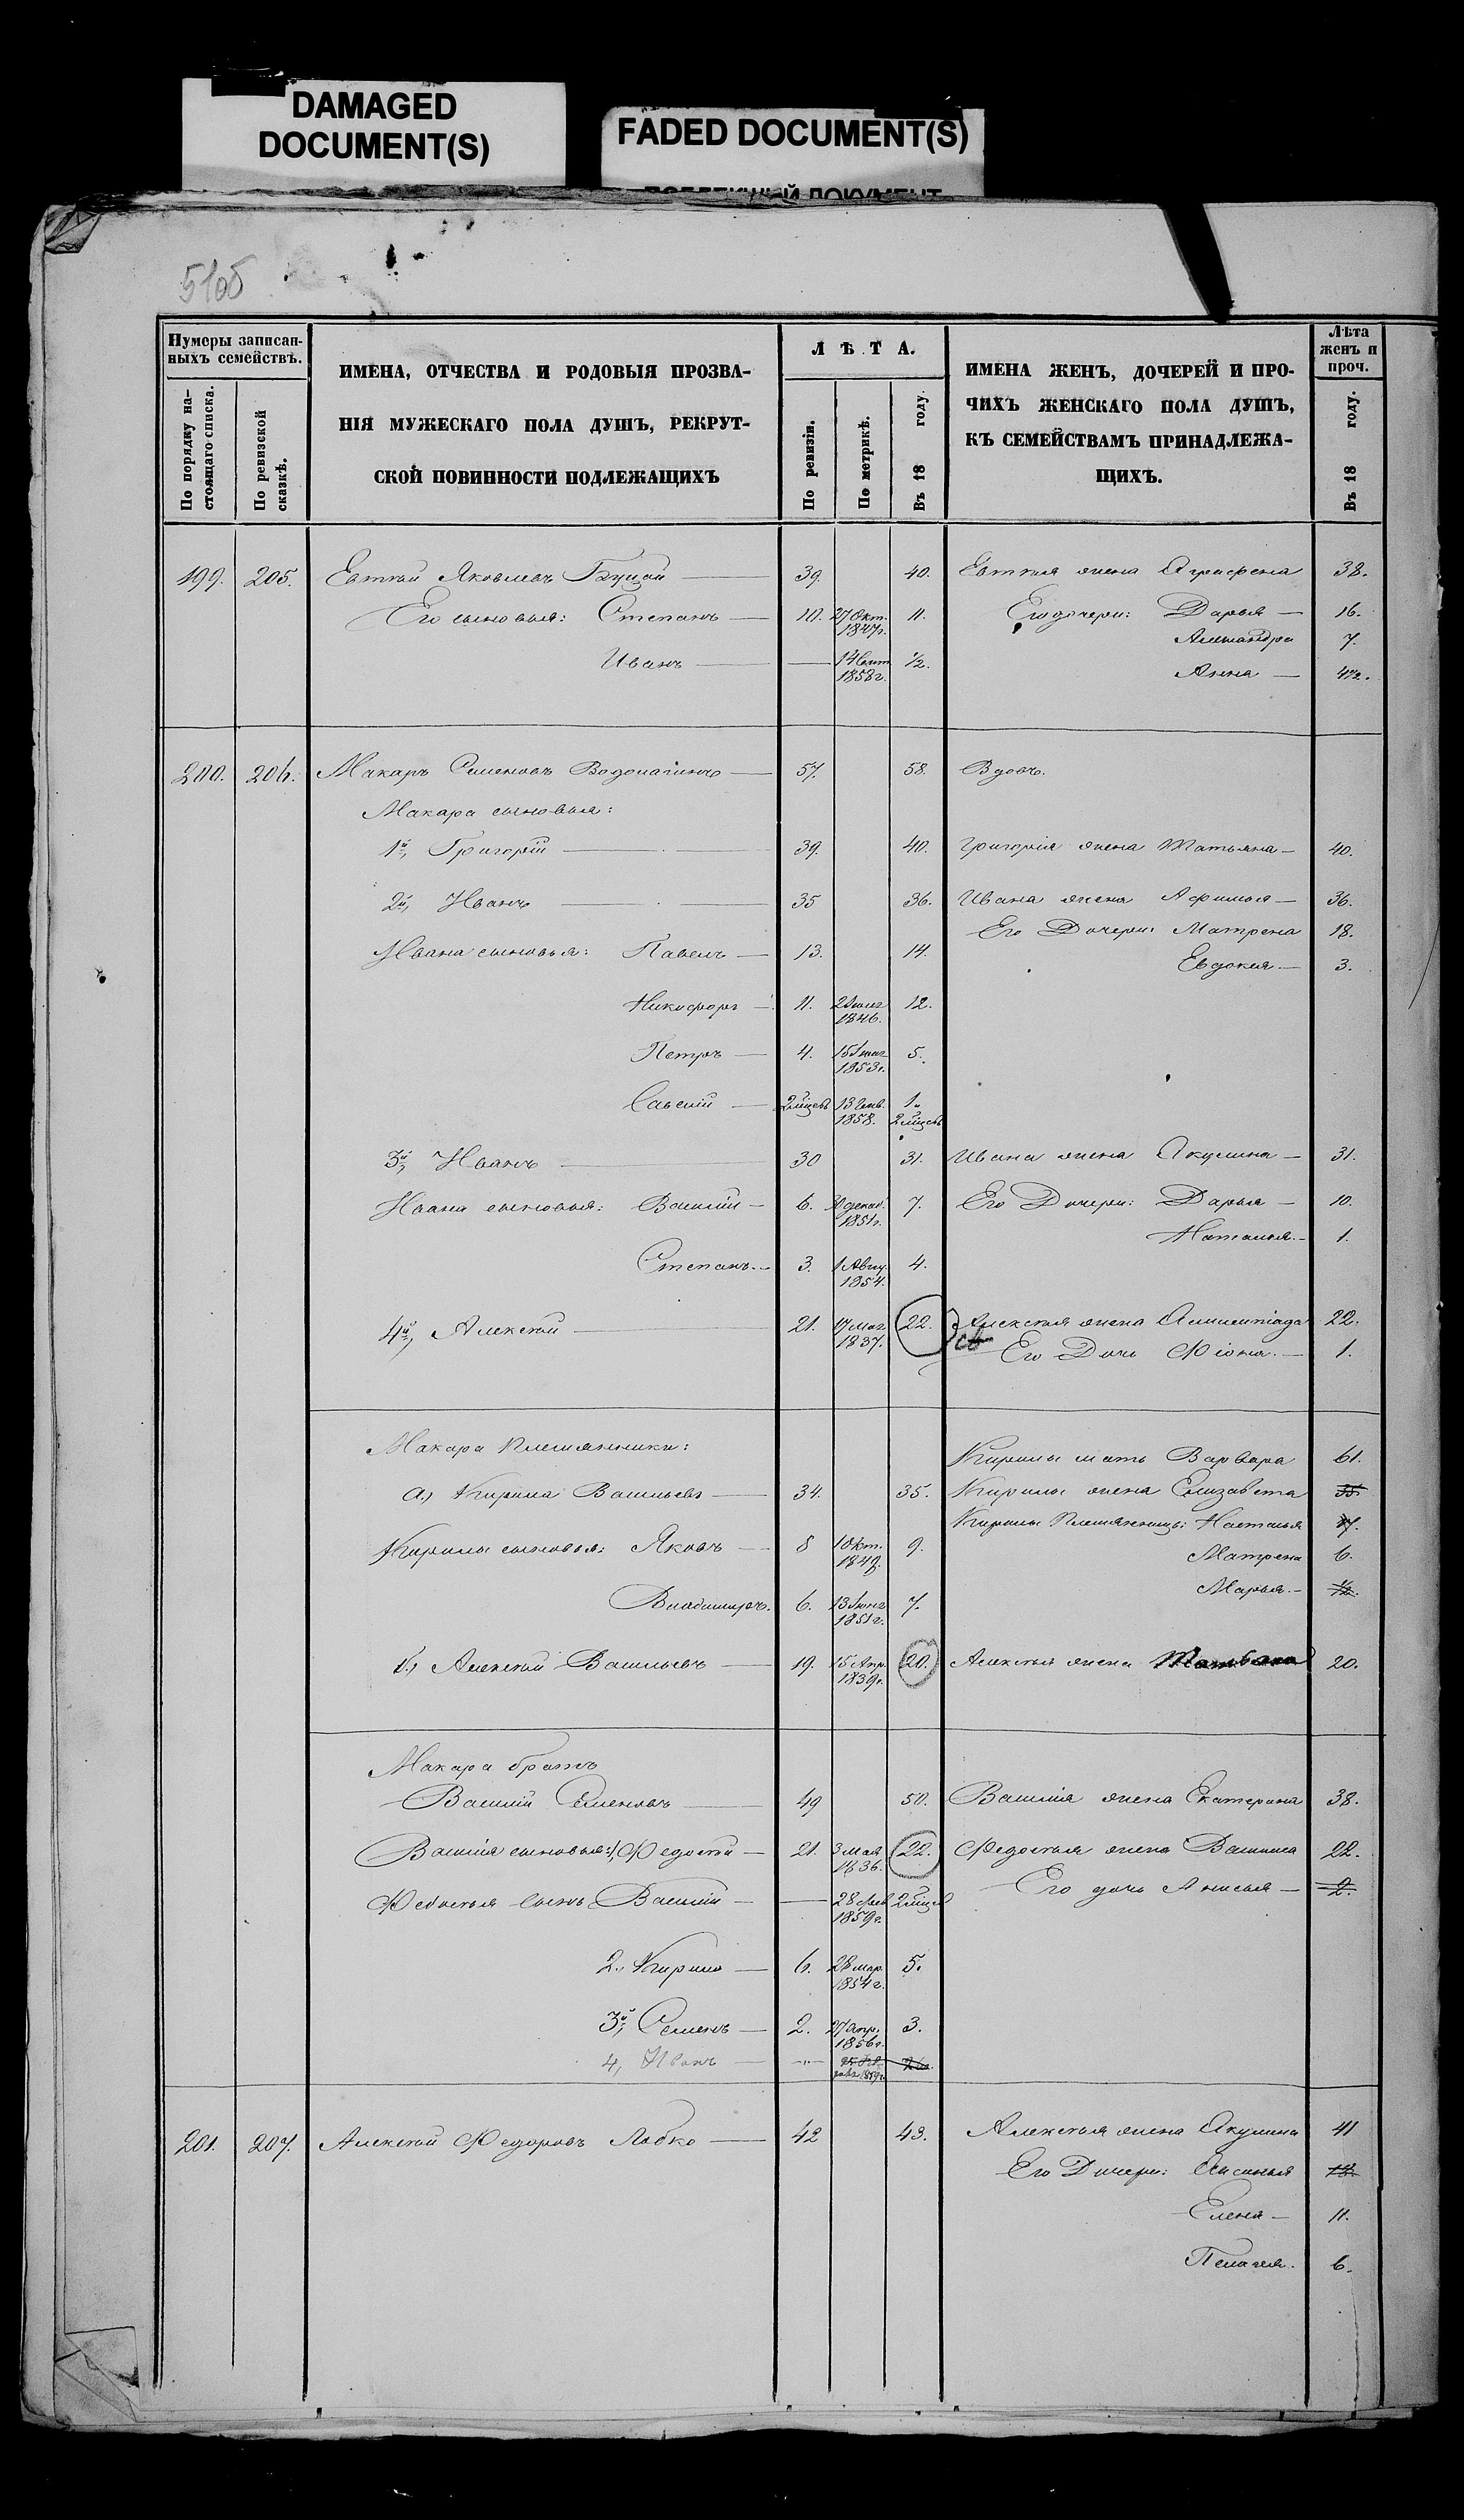 DAMAGED
DOCUMENT(S)
FADED DOCUMENT(S)
Нумеры записан-
ныхъ семействъ.
По порядку на-
стоящаго списка.
По ревизской
сказкѣ.
ИМЕНА, ОТЧЕСТВА И РОДОВЫЯ ПРОЗВА-
НІЯ МУЖЕСКАГО ПОЛА ДУШЪ, РЕКРУТ-
СКОЙ ПОВИННОСТИ ПОДЛЕЖАЩИХЪ
ЛѢТА.
По ревизіи.
По метрикѣ.
Въ 18 году.
ИМЕНА ЖЕНЪ, ДОЧЕРЕЙ И ПРО-
ЧИХЪ ЖЕНСКАГО ПОЛА ДУШЪ,
КЪ СЕМЕЙСТВАМЪ ПРИНАДЛЕЖА-
ЩИХЪ.
Лѣта
женъ и
проч.
Въ 18 году.
199. 205. Евтѣй Яковлевъ 39. 40. Евтѣя жена Агрифена 38.
Его сыновья: Степанъ 10. 27 Окт. 1847г. 11. Его дочери: Дарья 16.
Александра 7.
Иванъ 14 Сент. 1858г. ½.
Анна
200. 206. Макаръ Семеновъ 57. 58. Вдовъ.
Макара сыновья:
1й, Григорій 39. 40. Григорія жена Татьяна 40.
2й, Иванъ 35 36. Ивана жена Афимья 36.
Его Дочери: Матрена 18.
Ивана сыновья: Павелъ 13. 14.
Евдокия 3.
Никифоръ 11. 1846. 12.
Петръ 4. 1853г. 5.
Савелий 2 мѣсев 13 Генв. 1858. 1 2 мѣсев
3й, Иванъ 30 31. Ивана жена Акулина 31.
Ивана сыновья: Василий 6. 30 декаб. 1851г. 7. Его Дочери: Дарья 10.
Наталья 1.
Степанъ 3. 1 Авгу. 1854. 4.
4й, Алексѣй 21. 17 Мар 1837. 22. Алексѣя жена 22.
Его Дочь Фіона 1.
Макара Племянники:
Кирилы мать Варвара 61.
а.) Кирила Васильевъ 34. 35. Кирилы жена Елизавета 35.
Кирилы Племянницы: Наталья
Кирилы сыновья: Яковъ 8 1 Окт. 1849. 9. Матрена 6.
Марья
Владимиръ. 6. 13 Іюня 1851г. 7.
б.) Алексѣй Васильевъ 19. 15 Апр. 1839г. 20. Алексѣя жена 20.
Макара братъ
Василий Семеновъ 49 50. Василія жена Екатерина 38.
Василія сыновья: 1, Федосѣй 21. 3 мая 1836. 22. Федосѣя жена Василиса 22.
Его дочь Анисья 2.
Федосѣя сынъ Василій 28 фев 1859г. 2 мѣсев
2. Кирило 6. 28 мар. 1854г. 5.
3й, Семенъ 2. 27 апр. 1856г. 3.
4, Иванъ
201. 207. Алексѣй Федоровъ Лобко 42 43. Алексѣя жена Акулина 41
Его Дочери: 18.
Елена 11.
Пелагея. 6.